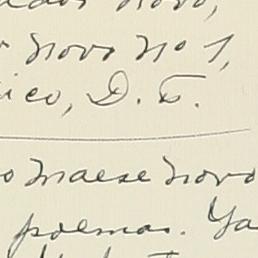 Novo,
Novo No 1,
ico, D. F.
o Maese Novo
poemas. Ya